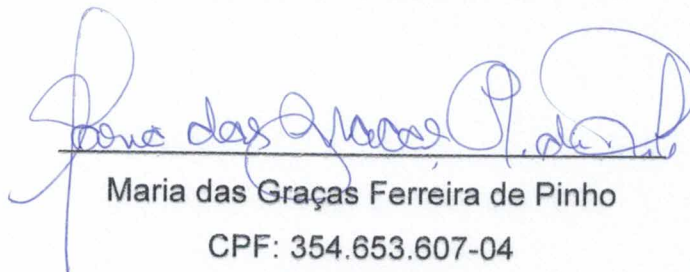 das Graças
Maria das Graças Ferreira de Pinho
CPF: 354.653.607-04